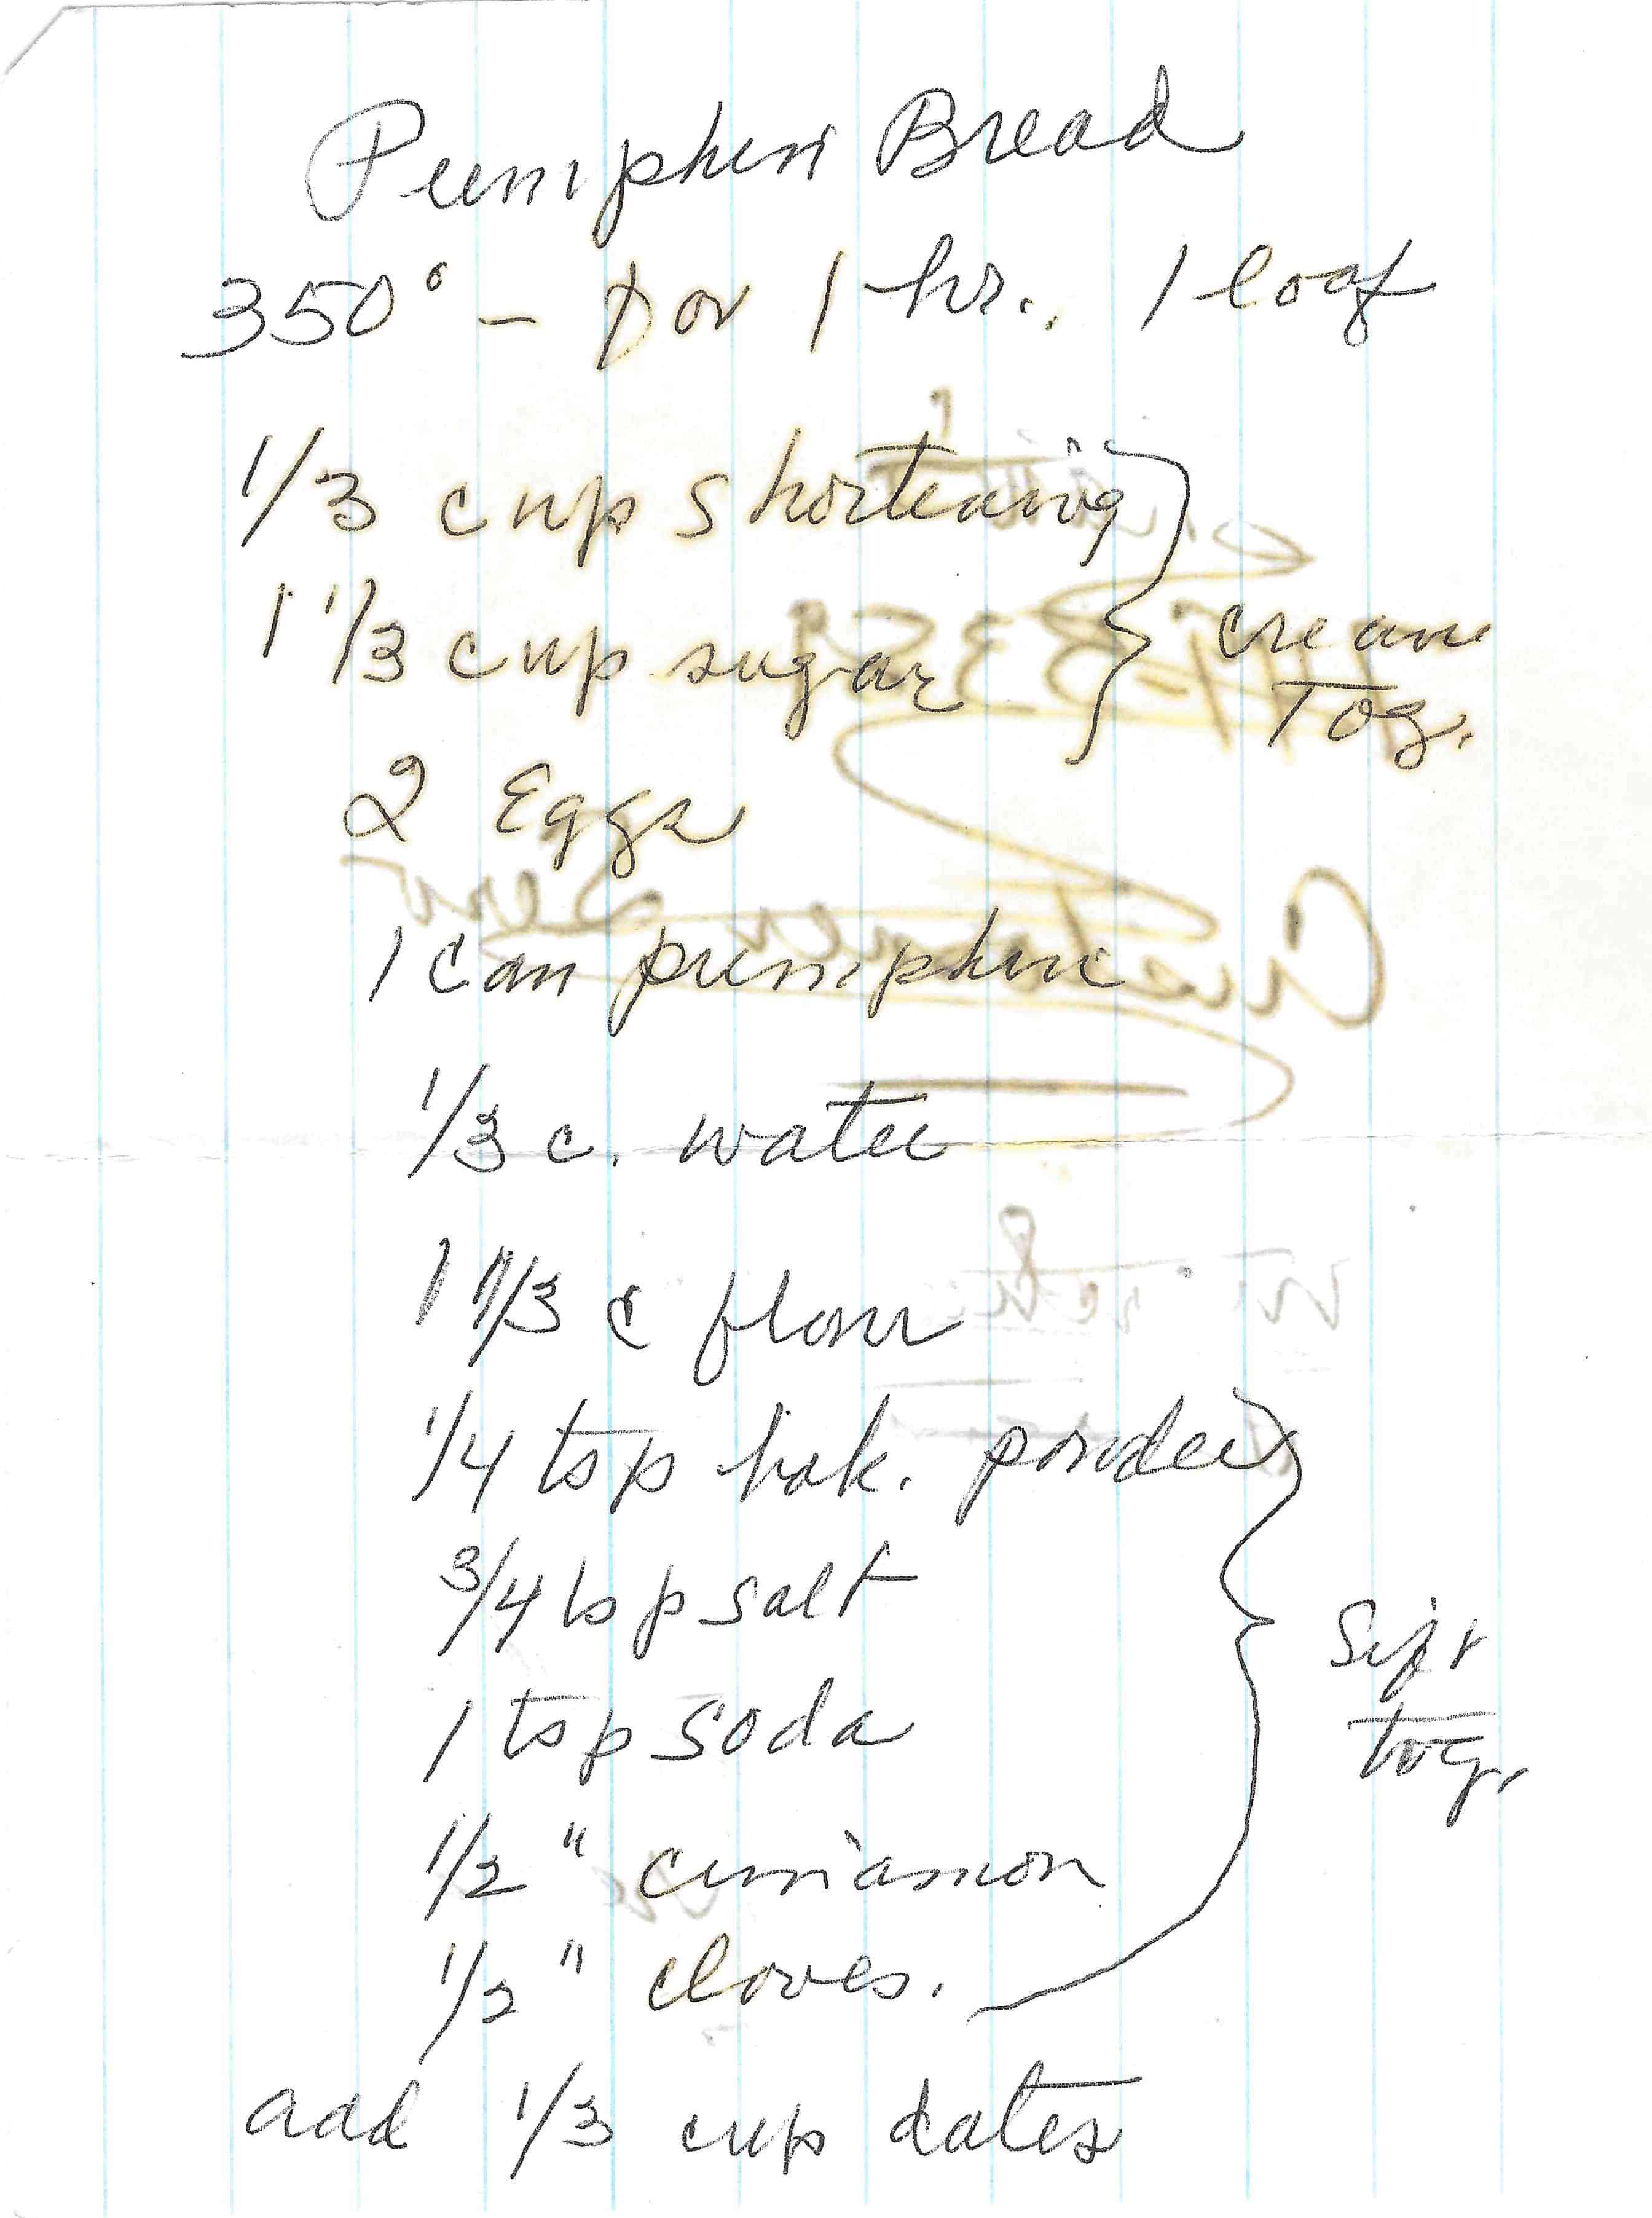 Pumpkin Bread
350° - for 1 hr., 1 loaf
1/3 cup shortening
1 1/3 cup sugar
cream
Tog.
2 Eggs
1 can pumpkin
1/3 c. water
1 1/3 c flour
1/4 tsp bak. powder
3/4 tsp salt
1 tsp soda
1/2 " cinnamon
1/2 " cloves.
Sift
tog.
add 1/3 cup dates